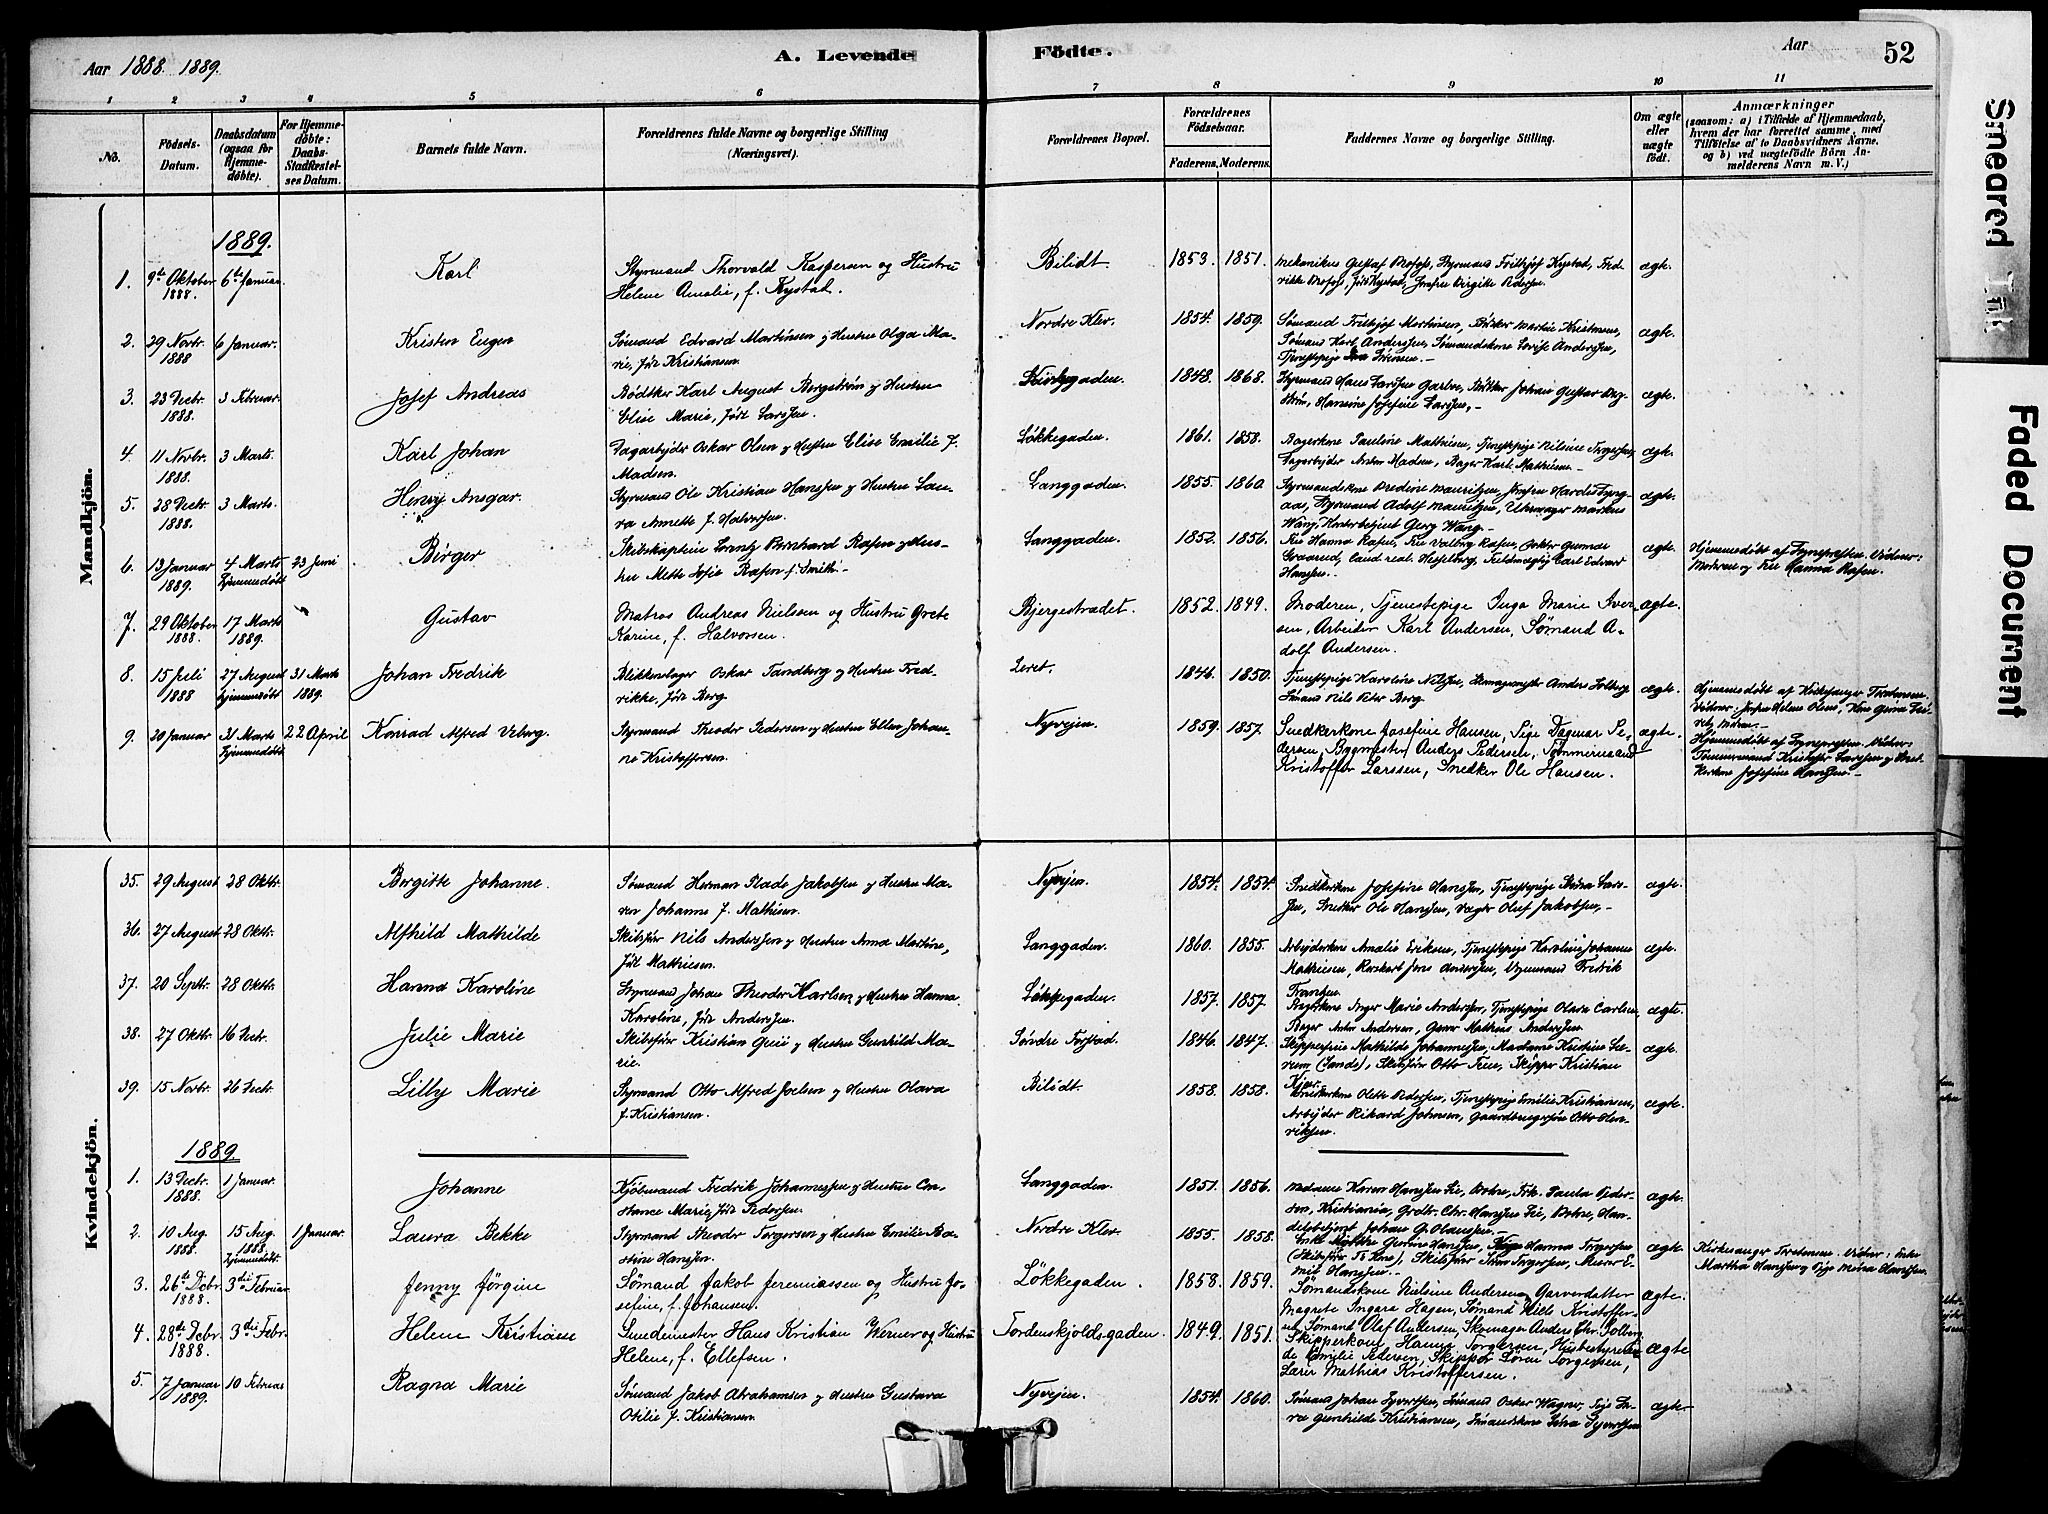 Aar 1888. 1889.
A. Levende Födte.
Aar
52
1 2 3 4 5 6 7 8 9 10 11
No.
Fødsels-
Datum.
Daabsdatum
(ogsaa for
Hjemme-
døbte).
For Hjemme-
døbte:
Daabs-
Stadfæstel-
ses Datum.
Barnets fulde Navn.
Forældrenes fulde Navne og borgerlige Stilling
(Næringsvei).
Forældrenes Bopæl.
Forældrenes
Fødselsaar.
Faderens. Moderens.
Faddernes Navne og borgerlige Stilling.
Om ægte
eller
uægte
født.
Anmærkninger
(saasom: a) i Tilfælde af Hjemmedaab,
hvem der har forrettet samme, med
Tilføielse af to Daabsvidners Navne,
og b) ved uægtefødte Børn An-
melderens Navn m. V.)
Mandkjön.
1889.
1. 9de Oktober 1888. 6te Januar. Karl
Styrmand Thorvald Kaspersen og Hustru
Helene Amalie, f. Kystad.
Bilidt. 1853. 1851. ægte.
2. 29 Novbr. 1888 6 Januar. Kristen Eugen
Sømand Edvard Martinsen og Hustru Olga Ma-
rie, født Kristiansen.
Nordre Klev. 1854. 1859.
Sømand Karl Anderssen, Sømandskone Lovise Anderssen,
ægte.
3. 23 Decbr. 1888. 3 Februar. Josef Andreas
Bødtker Karl August Bergstrøm og Hustru
Elise Marie, født Larssen.
Kirkegaden. 1848. 1868.
Hansine Josefine Larssen,
ægte.
4. 11 Novbr. 1888. 3 Marts. Karl Johan
Dagarbejder Oskar Olsen og Hustru Elise Emilie f.
Madsen.
Løkkegaden. 1861. 1858. Bagerkone Pauline Mathisen, Tjenestepige Nilsine
Dagarbejder Anton Madsen, Bager Karl Mathisen
ægte.
5. 28 Decbr. 1888. 3 Marts. Henry Ansgar.
Styrmand Ole Kristian Hanssen og Hustru Lau-
ra Annette f. Halvorsen.
Langgaden. 1855. 1860.
Styrmand Adolf Mauritzen, Uhrmager Markus
Wang, Kontorbetjent Georg Wang.
ægte.
6. 13 Januar 1889. 4 Marts Hjemmedøbt 23 Juni Birger
Skibskaptein Lorentz Bernhard Rafen og Hus-
tru Mette Sofie Rafen f. Smith.
Langgaden. 1852. 1856. Fru Hanna Rafen, Fru Valborg Rafen, Doktor Gunnar
Graarud, Cand. real. Hesselberg, Fuldmægtig Carl Edvard
Hanssen.
ægte. Hjemmedøbt af Sognepresten. Vidner:
Moderen og Fru Hanna Rafen.
7. 29 Oktober 1888. 17 Marts 1889. Gustav
Matros Andreas Nielssen og Hustru Grete
Karine, f. Halvorsen.
Bjergestrædet. 1852. 1849. Moderen, Tjenestepige Inga Marie Iver-
sen, Arbeider Karl Andersen, Sømand A-
dolf Andersen.
ægte.
8. 15 Juli 1888 27 August Hjemmedøbt 31 Marts 1889. Johan Fredrik
Blikkenslager Oskar Tandberg og Hustru Fred-
rikke, født Berg.
Leret. 1846. 1850. Tjenestepige Karoline Nilsen, Skomagermester Anders Solberg
Sømand Nils Peter Berg
ægte. Hjemmedøbt af Kirkesanger Torstensen.
9. 20 Januar 31 Marts Hjemmedøbt 22 April Konrad Alfred Viborg.
Styrmand Theodor Pedersen og Hustru Ellen Johan-
ne Kristoffersen.
Nyvejen. 1859. 1857. Snedkerkone Josefine Hansen, Pige Dagmar Pe-
dersen, Bygmester Anders Pedersen, Tømmermand
Kristoffer Larssen, Snedker Ole Hansen.
ægte. Hjemmedøbt af Sognepresten. Vidner:
Tømmermand Kristoffer Larssen og Sned-
kerkone Josefine Hanssen.
Kvindekjön.
35. 29 August 28 Oktr. Birgitte Johanne.
Sømand Herman Plade Jakobsen og Hustru Ma-
ren Johanne f. Mathisen.
Nyvejen. 1854. 1854. Snedkerkone Josefine Hanssen, Tjenestepige Lars-
sen, Snedker Ole Hanssen, Vægter Oluf Jakobsen,
ægte.
36. 27 August 28 Oktr. Alfhild Mathilde
Skibsfør. Nils Anderssen og Hustru Anna Martine,
født Mathiesen.
Langgaden. 1860. 1855. Arbejderkone Amalie Eriksen, Tjenestepige Karoline Johanne
Mathiesen, Jens Andersen, Styrmand Fredrik
Franssen
ægte.
37. 20 Septr. 28 Oktr. Hanna Karoline
Styrmand Johan Theodor Karlsen og Hustru Hanna
Karoline, født Anderssen.
Løkkegaden. 1857. 1857 Bagerkone Inger Marie Anderssen, Tjenestepige Olava Carlsen
Bager Anton Andersen, Garver Mathias Anderssen
ægte.
38. 27 Oktr. 16 Decbr. Julie Marie
Skibsfør. Kristian Grii og Hustru Gunhild Ma-
rie.
Søndre Forstad. 1846. 1847. Skipperfrue Mathilde Johannessen, Madame Kristine
Skibsfør Otto Skipper Kristian
ægte.
39. 15 Novbr. 26 Decbr. Lilly Marie
Styrmand Otto Alfred Joelsen og Hustru Olava
f. Kristiansen.
Bilidt. 1858. 1858. Snedkerkone Olette Pedersen, Tjenestepige Emilie Kristiansen,
Arbejder Rikard Johnsen, Gaardbrugersøn Otto Hen-
riksen.
ægte.
1889.
1. 13 Decbr. 1888. 1 Januar. Johanne
Kjøbmand Fredrik Johannessen og Hustru Con-
stance Marie, født Pedersen.
Langgaden. 1851. 1856. Madame Karen Hanssen Lie, Frk. Paula Peder-
sen, Kristiania,
ægte.
2. 10 Aug. 1888. 15 Aug. 1888. Hjemmedøbt. 1 Januar. Laura Bekke
Styrmand Theodor Torgersen og Hustru Emilie Ba-
stine Hanssen.
Nordre Klev. 1855. 1858.
ægte. Kirkesanger Torstensen. Vidner: Enke
Martha Hanssen og Pige Mina Hanssen.
3. 26de Debr. 1888. 3die Februar Jenny Jörgine
Sømand Jakob Jeremiassen og Hustru Jo-
sefine, f. Johansen.
Lökkegaden. 1858. 1859. Sømandskone Nielsine Andersen, Garverdatter
Magrete Ingara Hagen, Sømand Niels Kristoffer-
sen, Sømand Olaf Andersen, Skomager Anders Chr. Solberg
ægte.
4. 28de Debr. 1888. 3die Febr. Helene Kristiane
Smedemester Hans Kristian Werner og Hustru
Helene, f. Ellefsen.
Tordenskjoldsgaden. 1849. 1851. Skipperkone Hanna Torgersen, Husbestyrerin-
de Emilie Petersen, Skipper Sören Torgersen,
Mathias Kristoffersen.
ægte
5. 7 Januar 1889. 10 Februar Ragna Marie
Sømand Jakob Abrahamsen og Hustru Gustava
Otilie f. Kristiansen.
Nyvejen. 1854. 1860. Sømand Johan Syvertsen, Sømand Oskar Wagner, Pige
Gunhilde Kristiansen, Sømandskone Syvertsen
ægte.
Smeared Ink
Faded Document